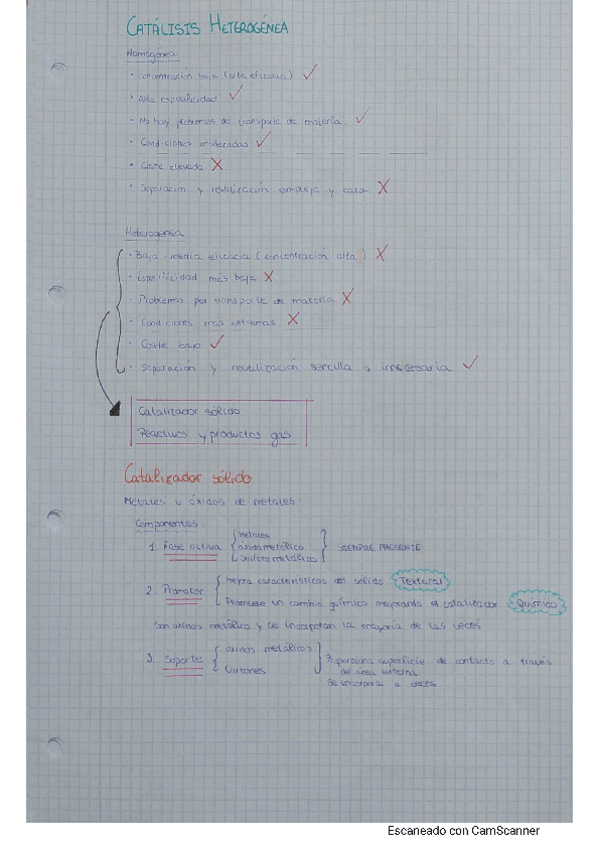 CATÁLISIS HETEROGÉNEA
Homogénea
· Concentración baja (alta eficacia) ✓
· Alta especificidad ✓
· No hay problemas de transporte de materia ✓
· Condiciones moderadas ✓
· Coste elevado X
· Separación y reutilización compleja y cara X
Heterogénea
· Baja-media eficacia (concentración alta) X
· Especificidad más baja X
· Problemas por transporte de materia X
· Condiciones más extremas X
· Coste bajo ✓
· Separación y reutilización sencilla o innecesaria ✓
Catalizador sólido
Reactivos y productos gas
Catalizador sólido
Metales u óxidos de metales
Componentes
1. Fase activa { metales
óxido metálico
sulfuro metálico } SIEMPRE PRESENTE
2. Promotor { mejora características del sólido Textural
Promueve un cambio químico mejorando el catalizador Químico
son óxido metálico y se incorporan la mayoría de las veces
3. Soporte { óxidos metálicos
Carbones } Proporciona superficie de contacto a través
del área externa
Se incorpora a veces
Escaneado con CamScanner